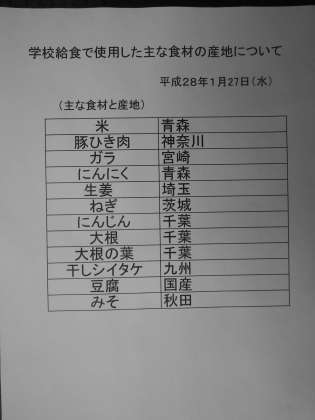 学校給食で使用した主な食材の産地について
平成28年1月27日(水)
(主な食材と産地)
米 青森
豚ひき肉 神奈川
ガラ 宮崎
にんにく 青森
生姜 埼玉
ねぎ 茨城
にんじん 千葉
大根 千葉
大根の葉 千葉
干しシイタケ 九州
豆腐 国産
みそ 秋田